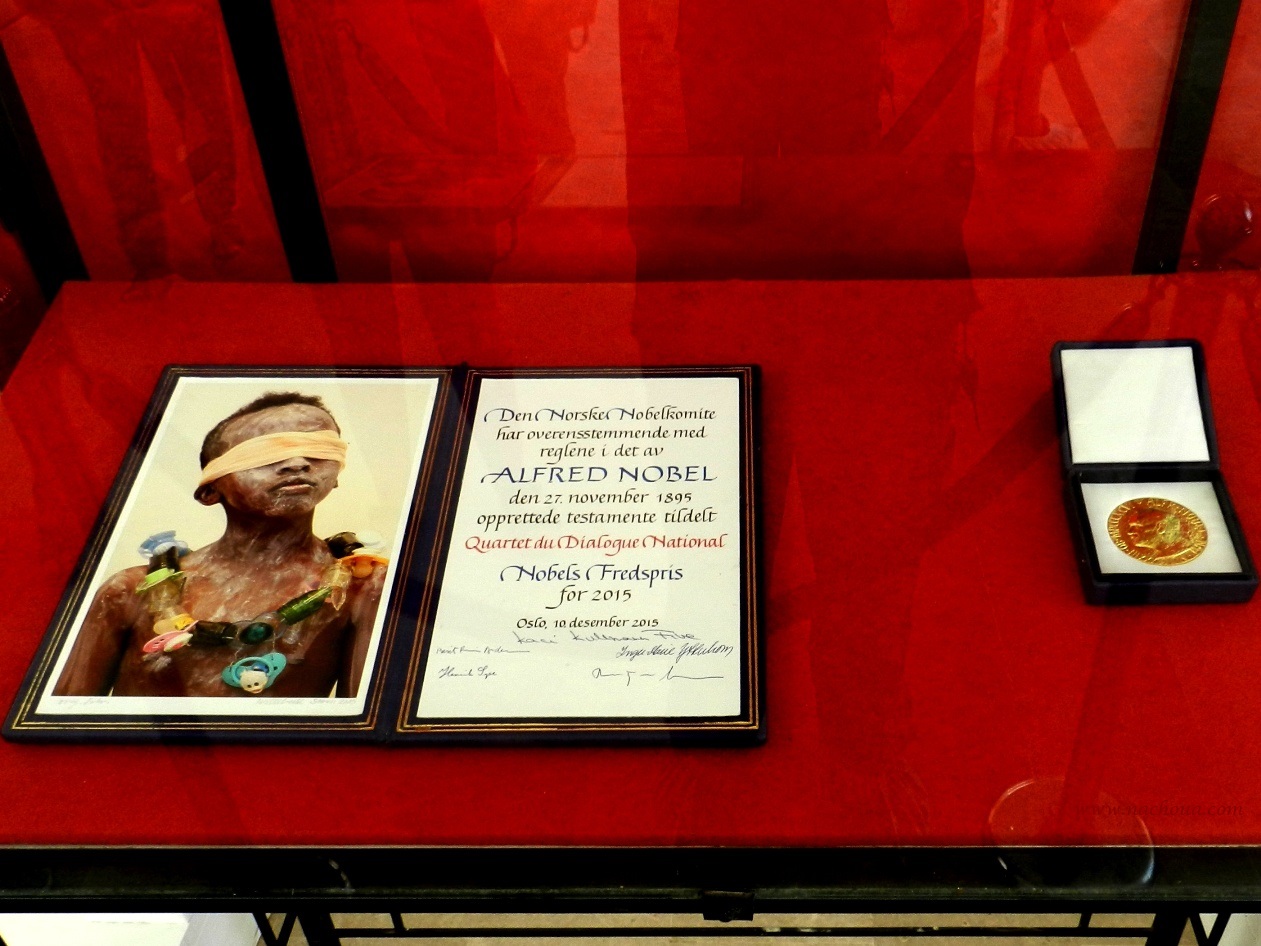 Den Norske Nobelkomite
har overensstemmende med
reglene i det av
ALFRED NOBEL
den 27. november 1895
opprettede testamente tildelt
Quartet du Dialogue National
Nobels Fredspris
for 2015
Oslo, 10. desember 2015
Kaci Kullmann Five